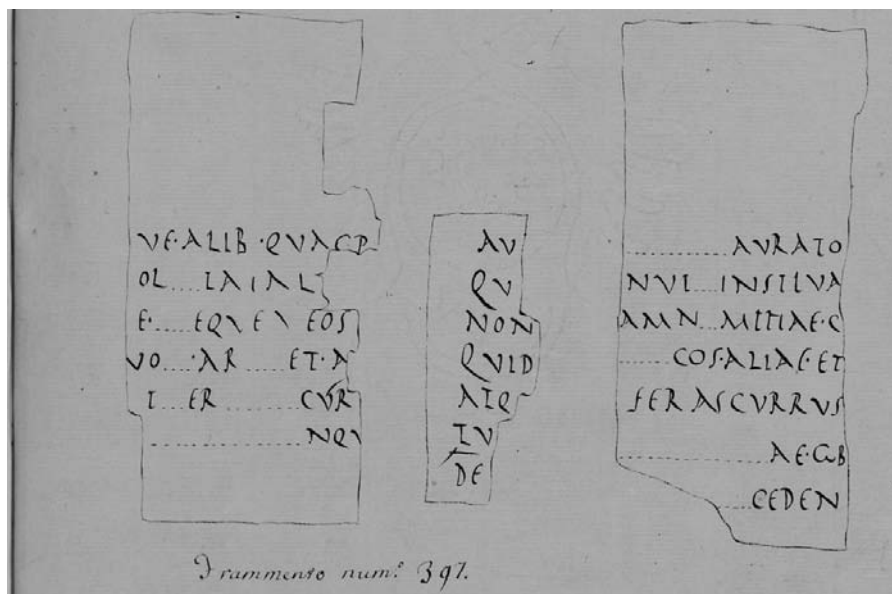 VE·ALIB·QVASCD
OL....IAIAL
E· EQVEV EOS
VO ·AR ET·A
I ER ........ CVR
................NQV
AV
QV
NON
QVID
AIQ
IV
DE
................AVRATO
NVI....INSILVA
AMN...MITIAE·C
........COS·ALIAE·ET
FERASCVRRVS
................AE·
......CEDEN
Frammento num.º 397.